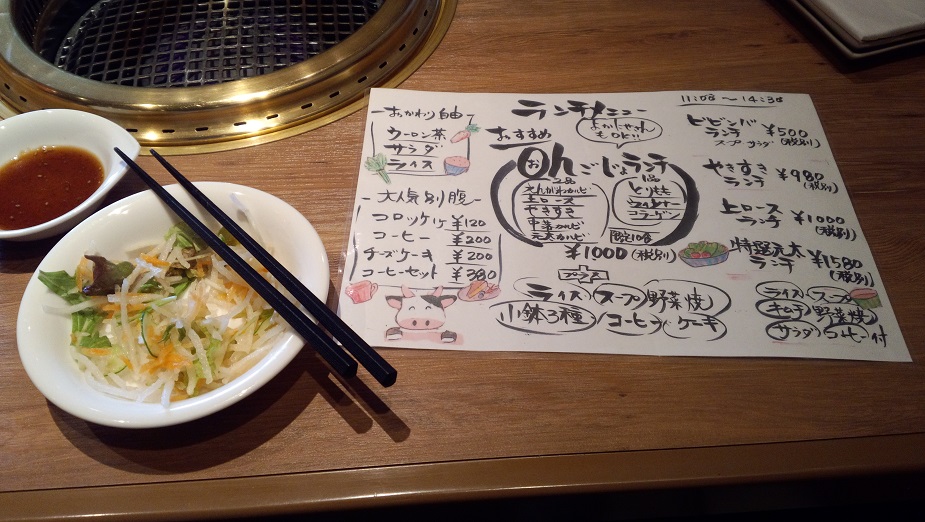 11:00～14:30
ランチメニュー
よかにせさんもOK!!
おかわり自由
ウーロン茶
サラダ
ライス
大人気別腹
コロッケ1ケ ¥120
コーヒー ¥200
チーズケーキ ¥200
コーヒーセット ¥380
おすすめ
おhんごじょランチ
2品
えんがわカルビ
上ロース
やきすき
中落カルビ
元太カルビ
1品
とりもも
ウィンナー
コラーゲン
限定10食
¥1000(税別)
プラス
ライス スープ 野菜焼
小鉢3種 コーヒー ケーキ
ビビンバランチ ¥500
スープ サラダ (税別)
やきすきランチ ¥980
(税別)
上ロースランチ ¥1000
(税別)
特選元太ランチ ¥1580
(税別)
ライス スープ
キムチ 野菜焼
サラダ コーヒー付